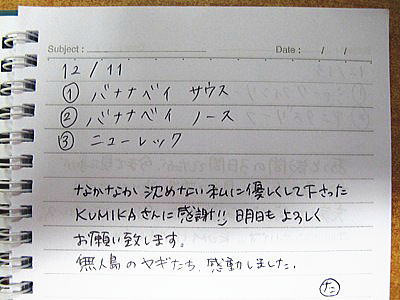 Subject :
Date :     /     /
12/11
① バナナベイ サウス
② バナナベイ ノース
③ ニューレック
なかなか 沈めない私に優しくして下さった
KUMIKAさんに感謝!! 明日も よろしく
お願い致します。
無人島のヤギたち、感動しました。